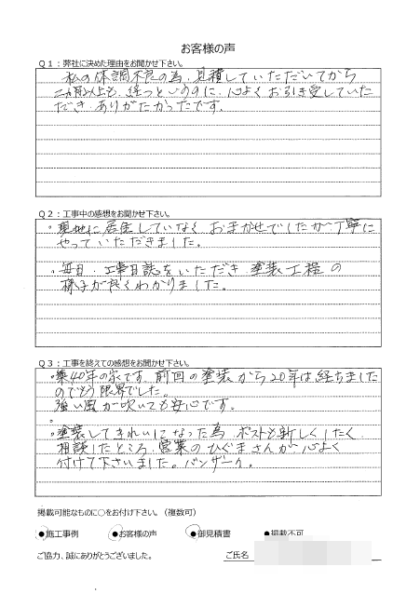 お客様の声
Q1：弊社に決めた理由をお聞かせ下さい。
私の体調不良の為、見積していただいてから
二ヵ月以上も経つというのに、心よくお引き受していた
だき、ありがたかったです。
Q2：工事中の感想をお聞かせ下さい。
・現地に居住していなく おまかせでしたが丁寧に
やっていただきました。
・毎日、工事日誌をいただき 塗装工程の
様子が良くわかりました。
Q3：工事を終えての感想をお聞かせ下さい。
・築40年の家です。前回の塗装から20年は経ちました
のでもう限界でした。
強い風が吹いても安心です。
・塗装してきれいになった為 ポストも新しくしたく
相談したところ 営業のひぐまさんが心よく
付けて下さいました。バンザーイ。
掲載可能なものに○をお付け下さい。（複数可）
●施工事例 ●お客様の声 ●御見積書 ●掲載不可
ご協力、誠にありがとうございました。 ご氏名